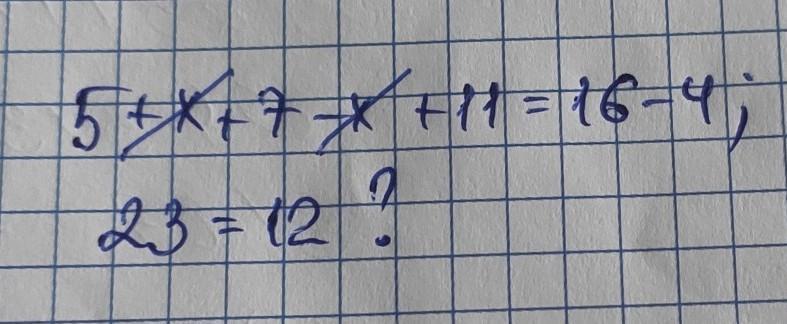 5 + x + 7 - x + 11 = 16 - 4;
23 = 12 ?